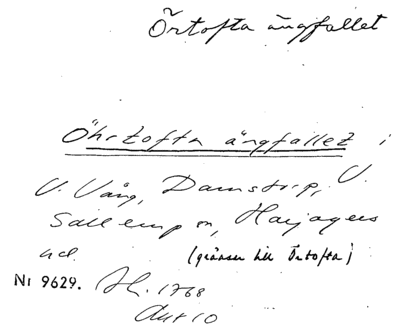 Örtofta ängfallet
Öhrtofta ängfallet i
V. Vång, Damstorp, V.
Sallerup sn, Harjagers
hd. (gränsar till Örtofta)
Nr 9629. Ah. 1768
Akt 10